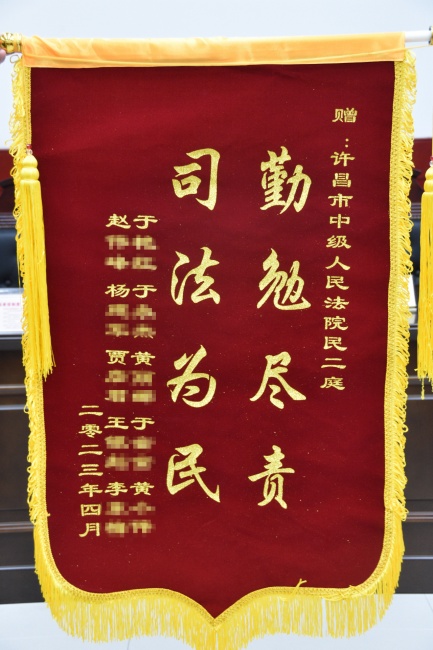 赠：许昌市中级人民法院民二庭
勤勉尽责
司法为民
于 于 黄 于 黄
赵 杨 贾 王 李
二零二三年四月